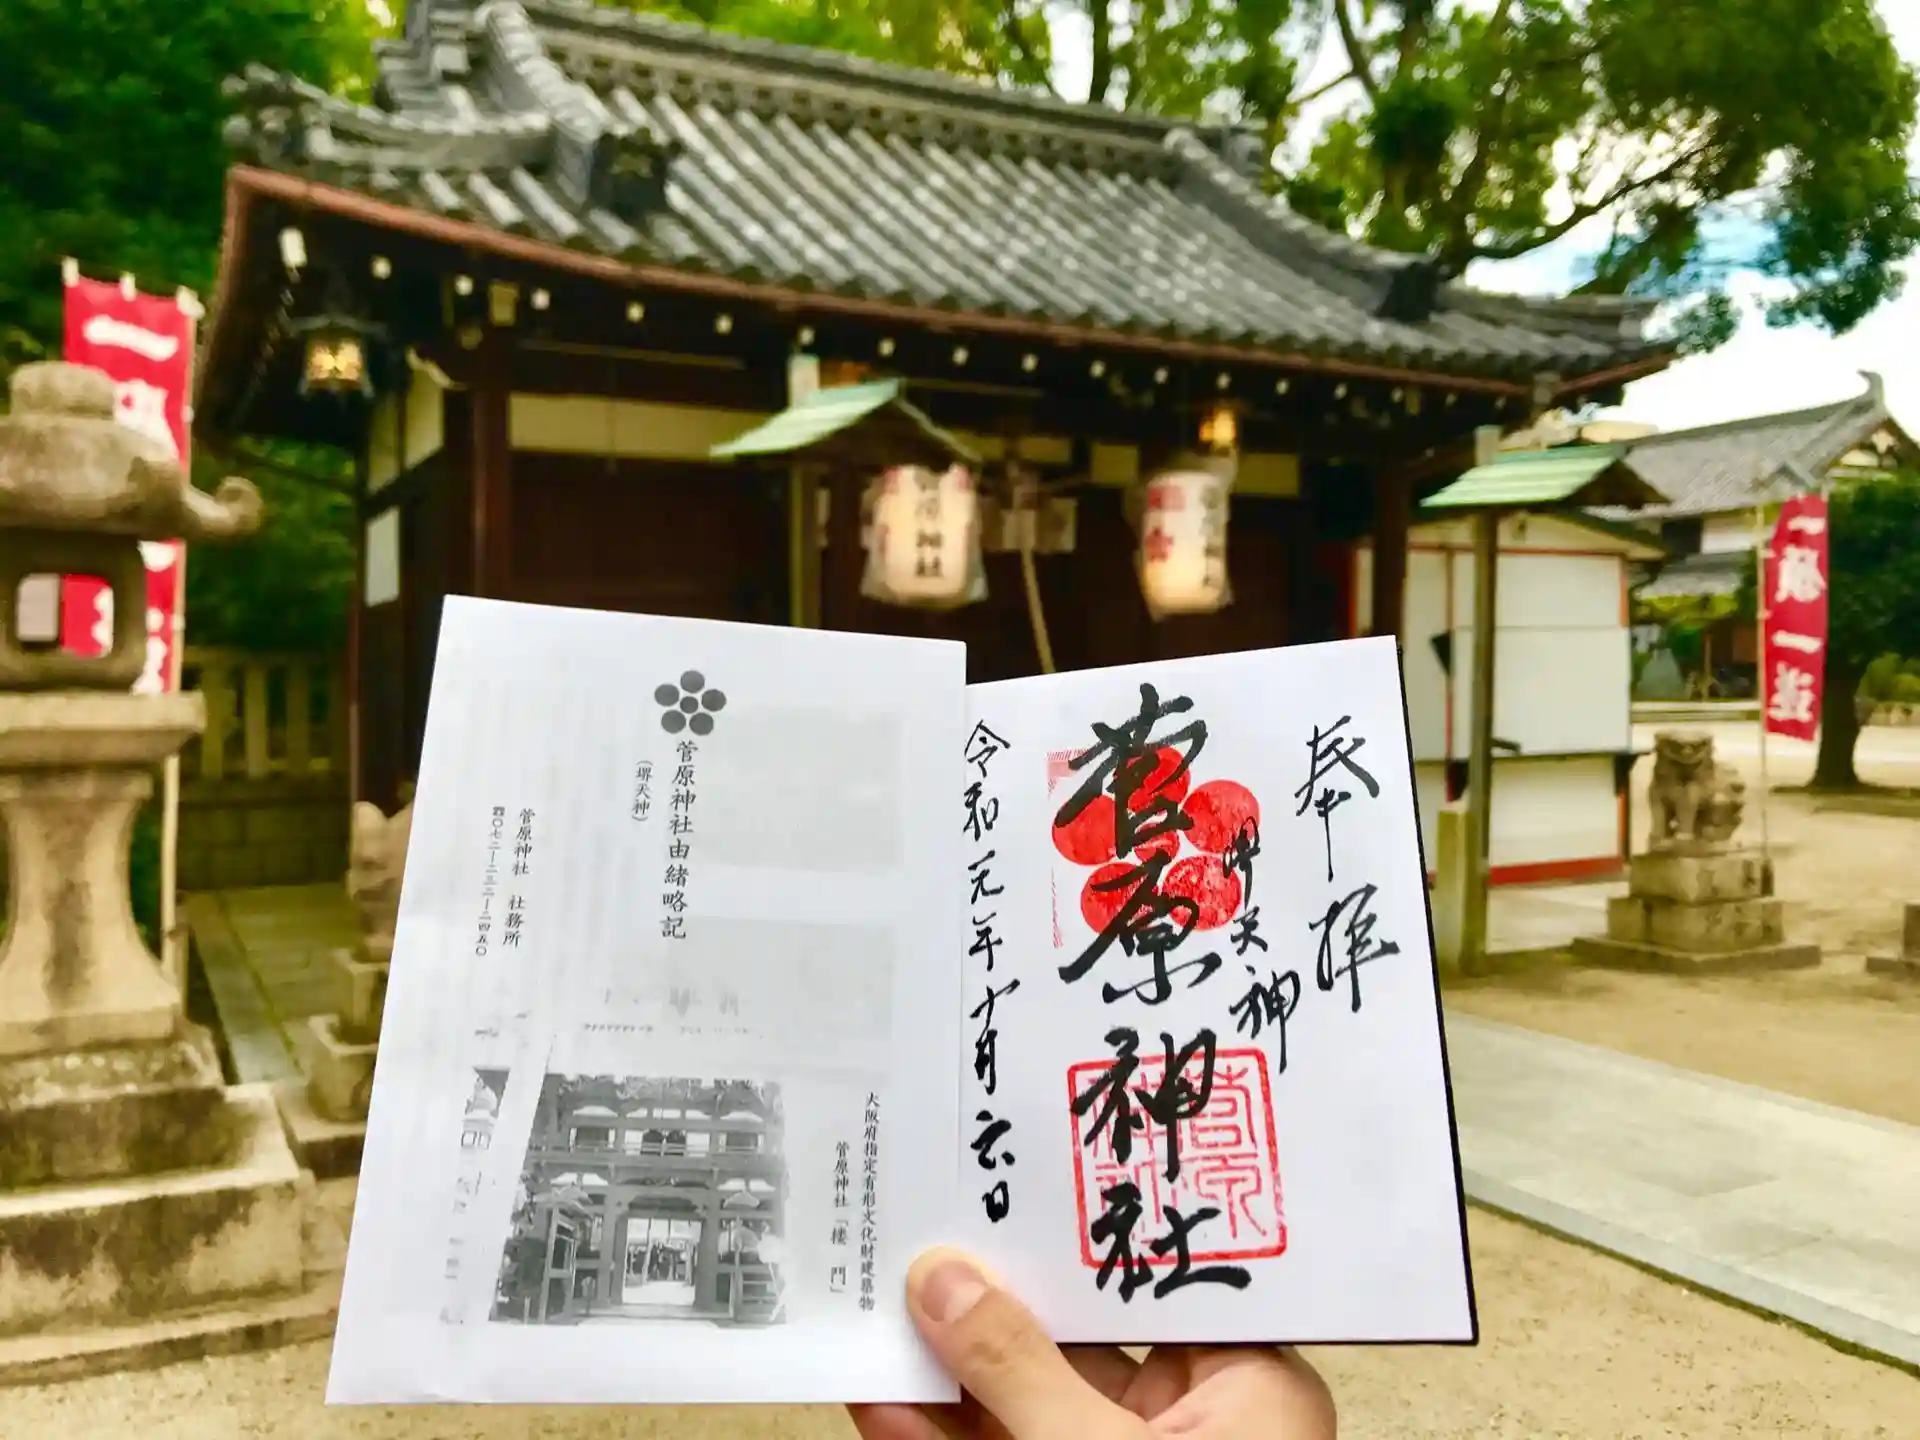 奉拝
堺天神
菅原神社
令和元年十月六日
菅原神社由緒略記
(堺天神)
菅原神社 社務所
☎〇七二ー二三二ー二四五〇
大阪府指定有形文化財建築物
菅原神社「楼門」
原神社
一願一遂